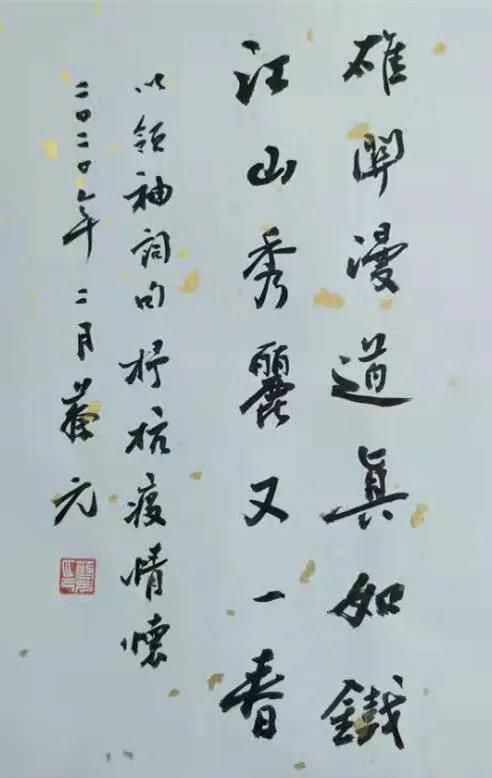 雄関漫道真如鐵
江山秀麗又一春
以領袖詞句抒抗疫情懷
二〇二〇年二月蔡元